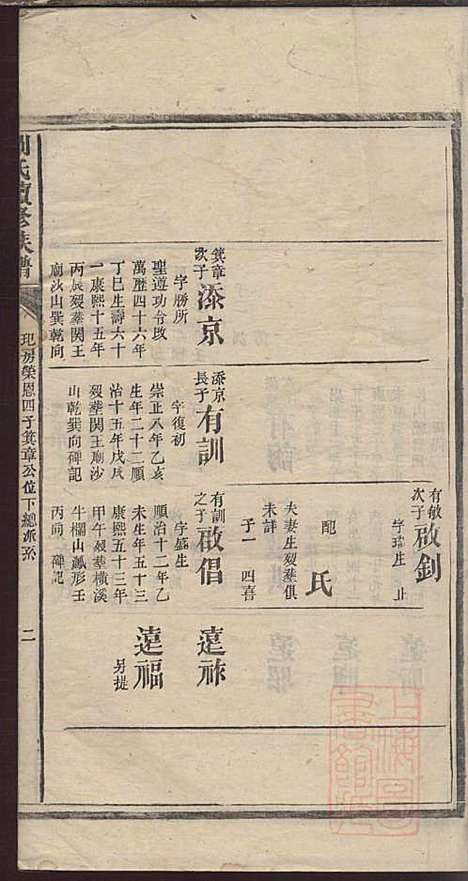 有敏次子啟釗
字瑞生 止
配 氏
夫妻生歿葬俱
未詳
子一 四喜
箕章次子添京
字勝所
聖遵功令改
萬歷四十六年
丁巳生壽六十
一康熙十五年
丙辰歿葬関王
廟沙山巽乾向
添京長子有訓
字復初
崇正八年乙亥
生年二十二順
治十五年戊戌
歿葬関王廟沙
山乾巽向碑記
有訓之子啟倡
字盛生
順治十二年乙
未生年五十三
康熙五十三年
甲午歿葬橫溪
牛欄山鳳形壬
丙向 碑記
遠祚
遠福
另提
氏續修族譜
玘房榮恩四子箕章公位下總派系
二